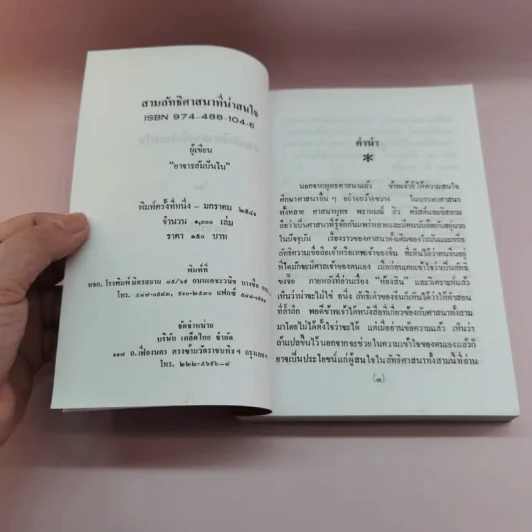 สามลัทธิศาสนาที่น่าสนใจ
ISBN 974-488-104-6
ผู้เขียน
"อาจารสัมปันโน"
พิมพ์ครั้งที่หนึ่ง – มกราคม ๒๕๔๑
จำนวน ๑,๐๐๐ เล่ม
ราคา ๑๕๐ บาท
พิมพ์ที่
หจก. โรงพิมพ์มิตรสยาม
โทร.
จัดจำหน่าย
บริษัท เคล็ดไทย จำกัด
๑๑๗ ถ.เฟื่องนคร ตรงข้ามวัดราชบพิธฯ กรุงเทพฯ
โทร. ๒๒๒-๕๖๙๖-๘
คำนำ
*
นอกจากพุทธศาสนาแล้ว ข้าพเจ้าก็ให้ความสนใจ
ศึกษาศาสนาอื่น ๆ อย่างกว้างขวาง ในบรรดาศาสนา
ทั้งหลาย ศาสนาพุทธ พราหมณ์ คริสต์และอิสลาม
ถือว่าเป็นศาสนาที่รู้จักกันแพร่หลายและมีคนนับถือกันอยู่มาก
ในปัจจุบัน เรื่องราวของศาสนาดั้งเดิมของโรมันและกรีก
ลัทธิความเชื่อถือเจ้าหรือเทพเจ้าของจีน ที่เห็นว่ามีคนจีนอยู่
ที่ใดมักจะมีศาลเจ้าของตนเอง
ของจีน ภายหลังที่อ่านเรื่อง "ห้องสิน" และวิเคราะห์แล้ว
เห็นว่าน่าจะไม่ใช่ อนึ่ง ลัทธิเต๋าของจีนก็เห็นได้ว่าให้คำสอน
ที่ล้ำลึก พอดีข้าพเจ้าได้หนังสือที่เกี่ยวของกับศาสนาทั้งสาม
มาโดยไม่ได้ตั้งใจว่าจะได้ แต่เมื่ออ่านข้อความแล้ว เห็นว่า
ถ้าแปลขึ้นไว้นอกจากจะช่วยในความเข้าใจของตนเองแล้วก็
อาจเป็นประโยชน์แก่ผู้สนใจในลัทธิศาสนาทั้งสามนี้ที่อ่าน
(๓)